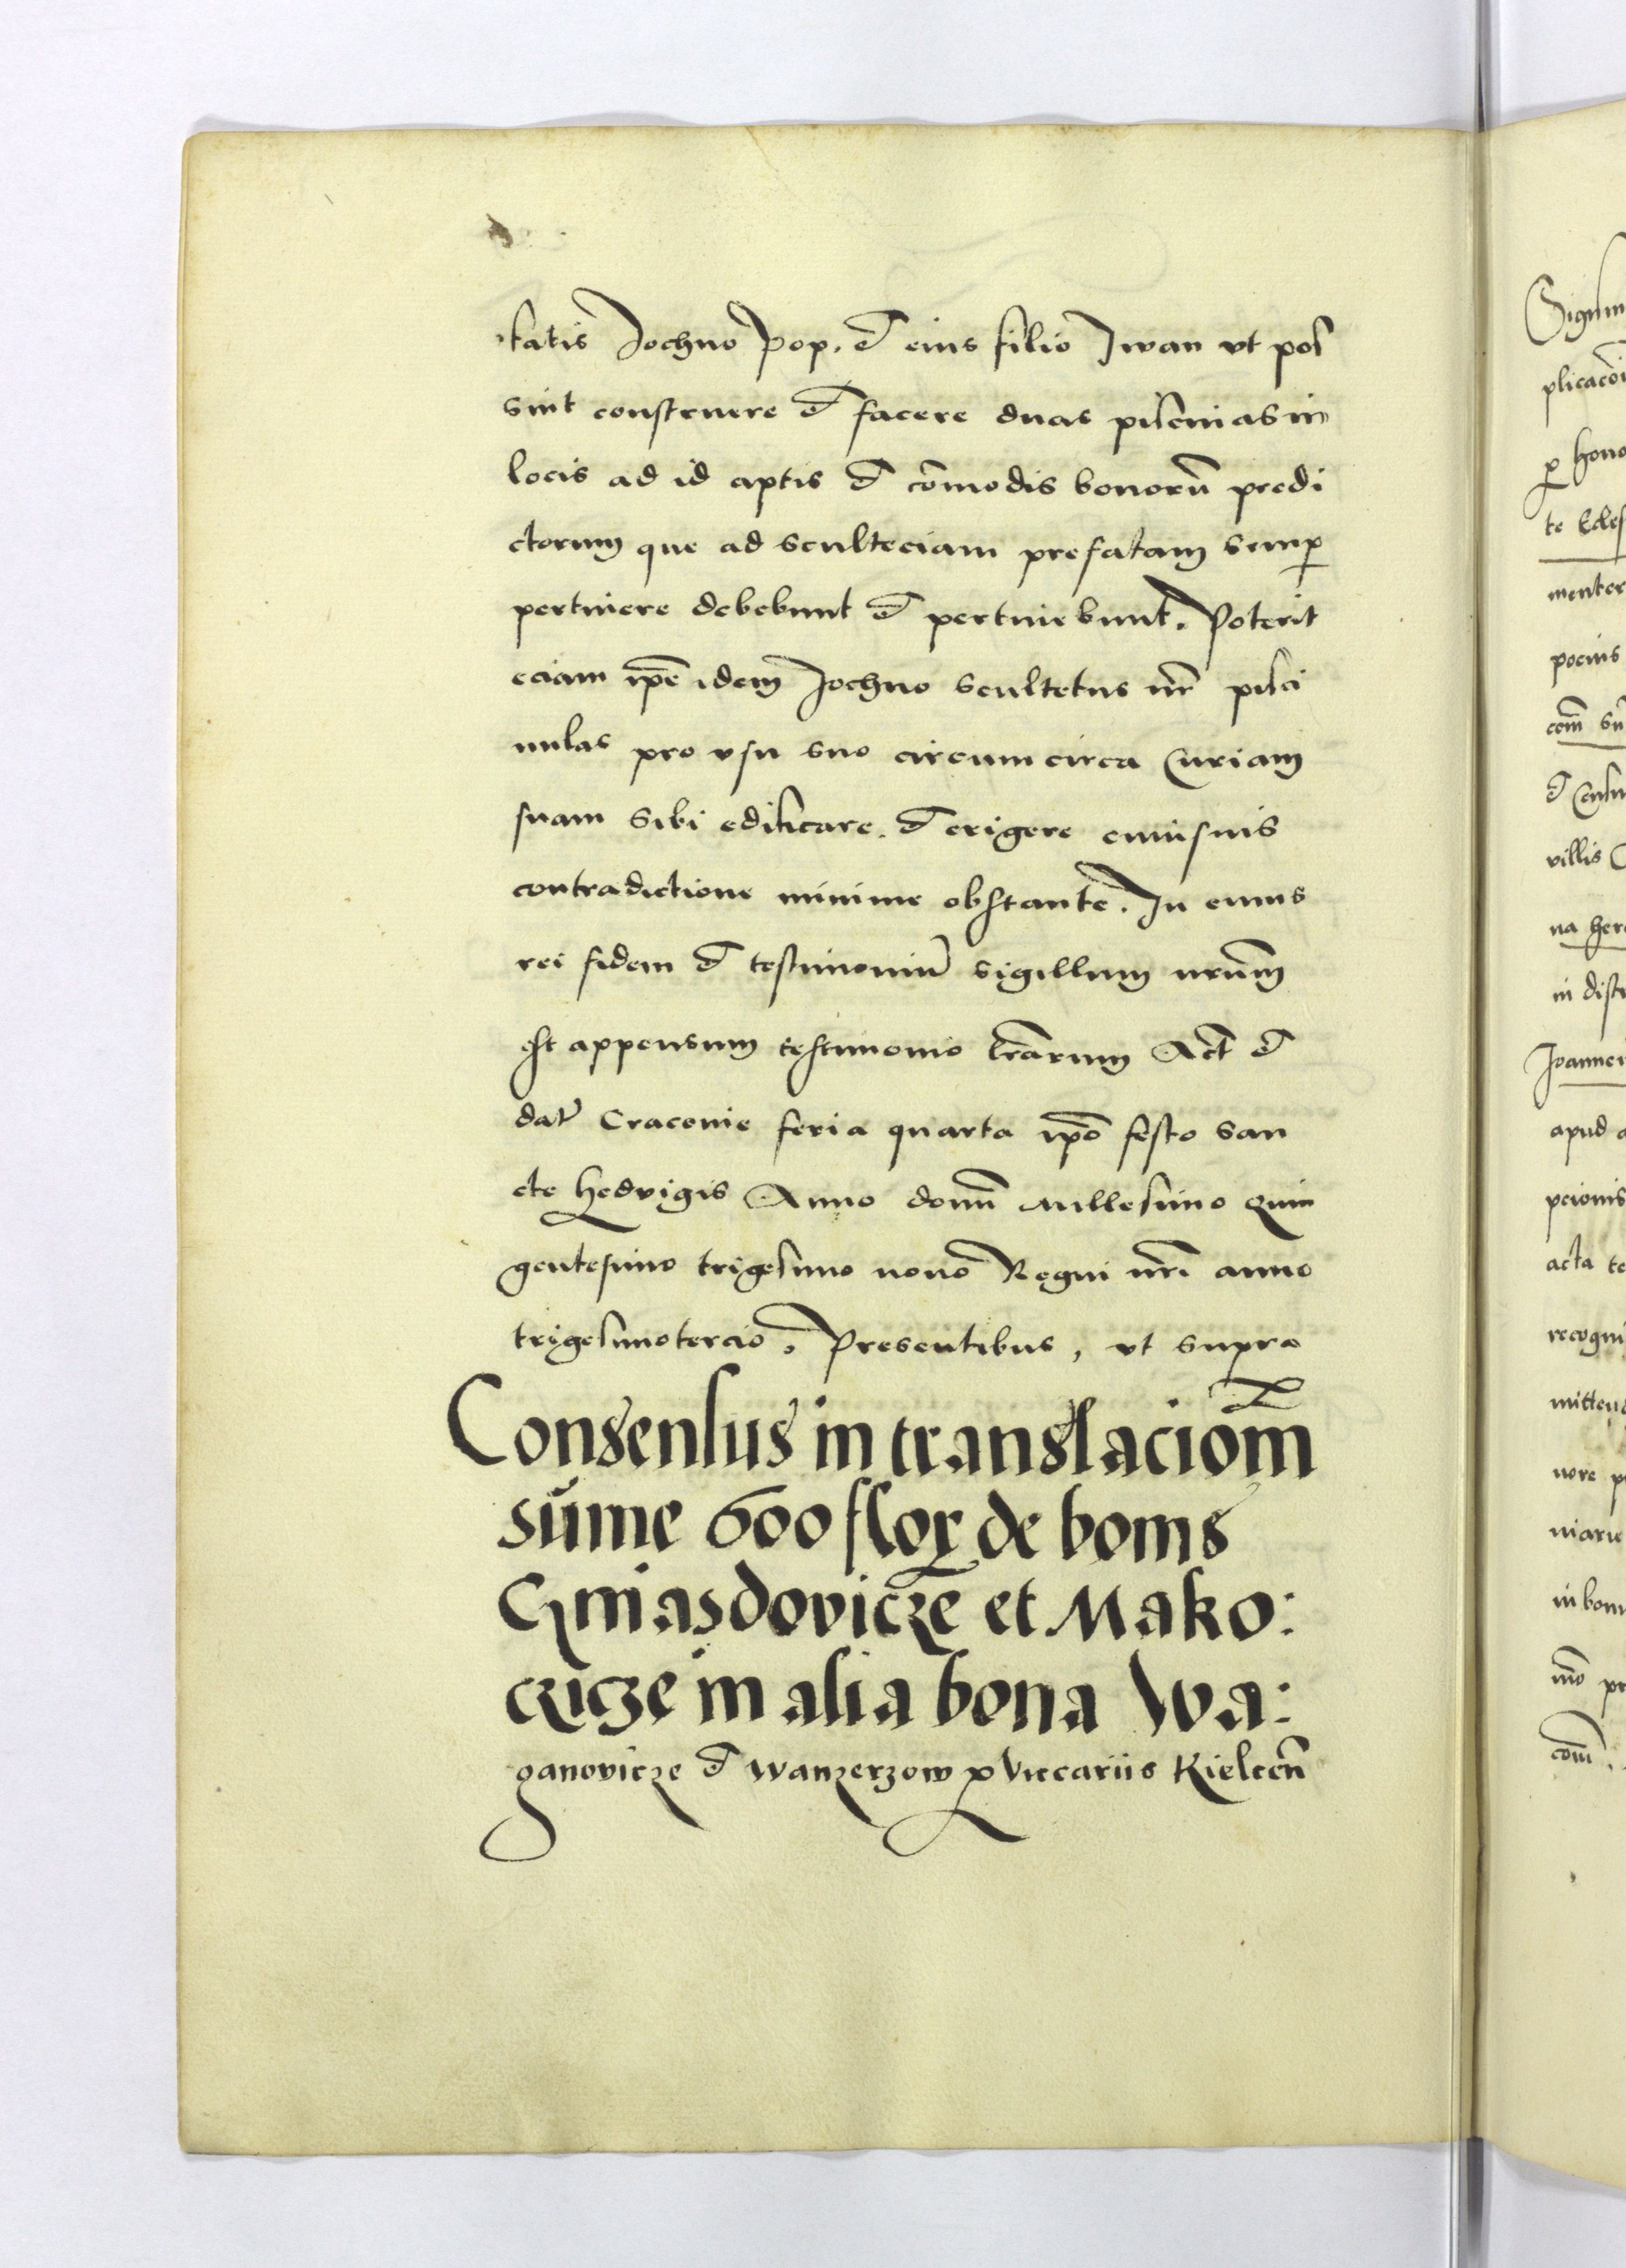 tatis Jochno Pop. et eius filio Iwan vt pos
sint construere et facere duas piscinas in
locis ad id aptis et com̄odis bonorū predi
ctorum que ad sculteciam prefatam semp
pertinere debebunt et pertinebunt. Poterit
eciam ip̄e idem Jochno scultetus nr̄ pisci
nulas pro vsu suo circumcirca Curiam
suam sibi edificare. et erigere cuiusuis
contradictione minime obstante. In cuius
rei fidem et testimoniū sigillum nr̄um
est appensum testimonio lr̄arum Act et
dat Cracouie feria quarta ip̄o festo san
cte Hedvigis Anno domī Millesimo quin
gentesimo trigesimo nono Regni nr̄i anno
trigesimotercio. Presentibus, vt supra
Consensus in translaciōm
sum̄e 600 flor de bonis
Gniasdovicze et Mako:
czicze in alia bona Wa:
ganovicze et Wanzerzow p Viccariis Kielceñ
Sigism
plicacōi
p hono
te Eccles
menter
pocius
et Censu
villis
na her
in distr
Joannem
apud a
pcionis
acta te
recogni
mittend
nore p
niarie
in boni
mō pr